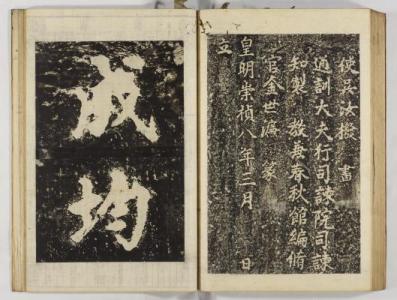 使吳汝撥 書
通訓大夫行司諫院司諫
知製 敎兼春秋館編脩
官金世濂 篆
皇明崇禎八年三月 日
立
成均